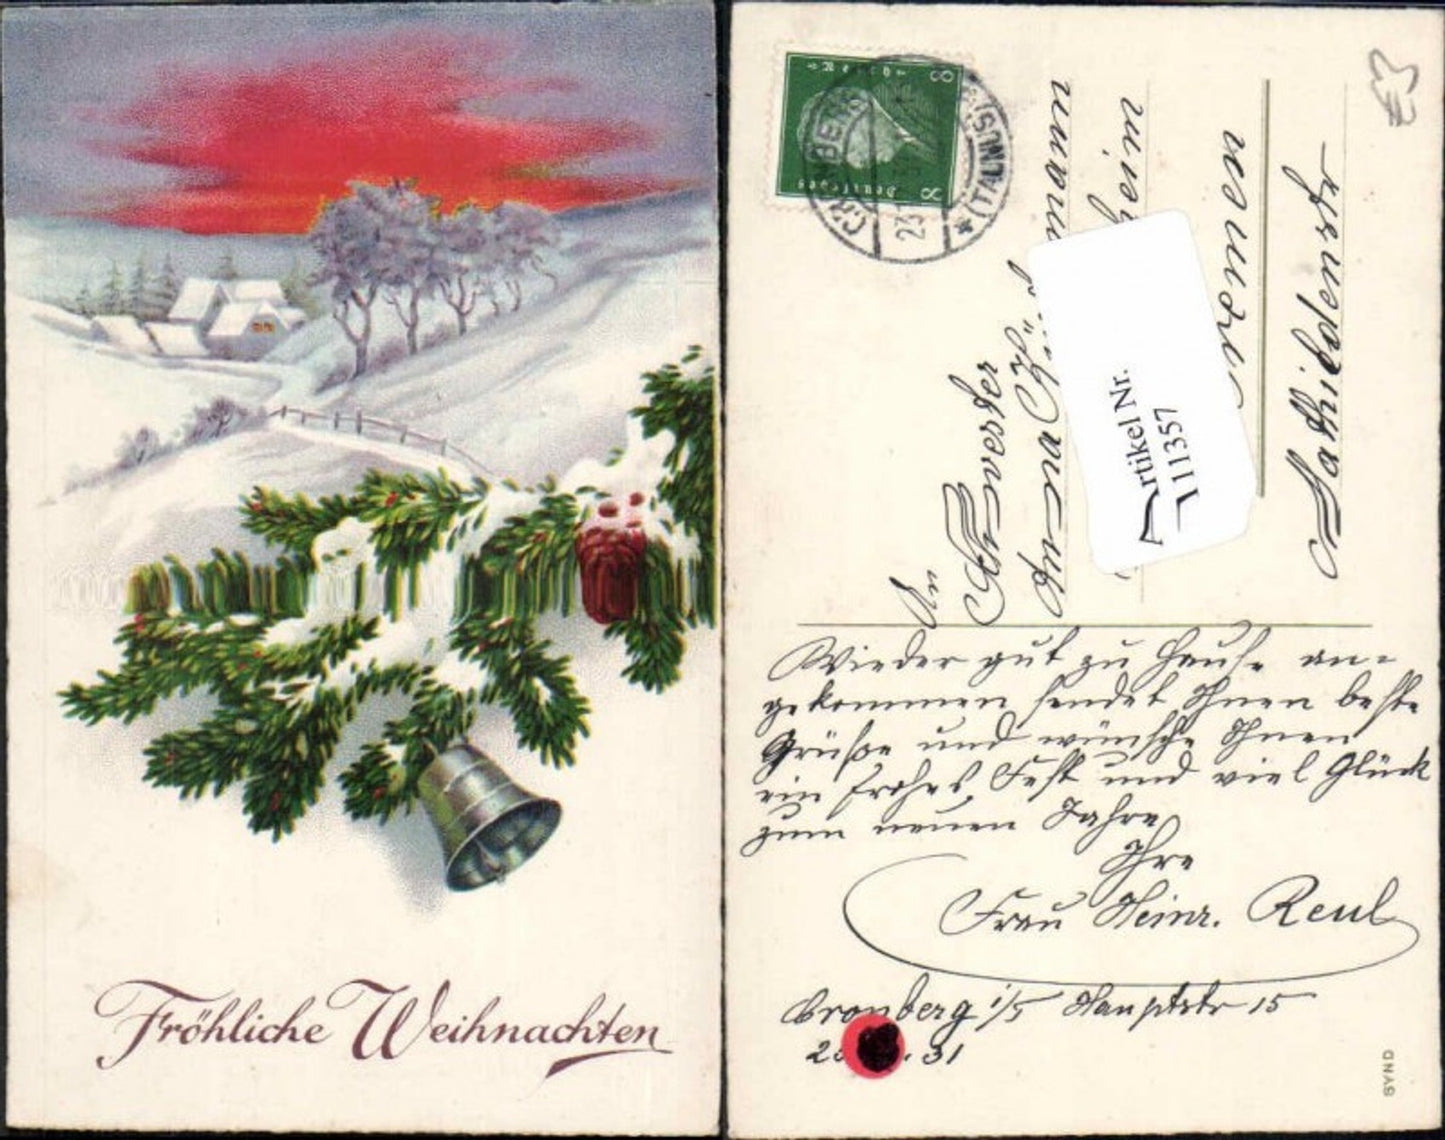 Fröhliche Weihnachten
8 8
Deutsches
CRONBERG
(TAUNUS)
23
An
Schwester
Anna
Mathildenstr
Artikel Nr.
711357
Wieder gut zu Hause an-
gekommen sendet Ihnen beste
Grüße und wünscht Ihnen
ein frohes Fest und viel Glück
zum neuen Jahre
Ihre
Frau Heinr. Reul
Cronberg i/T Hauptstr 15
31
SYND